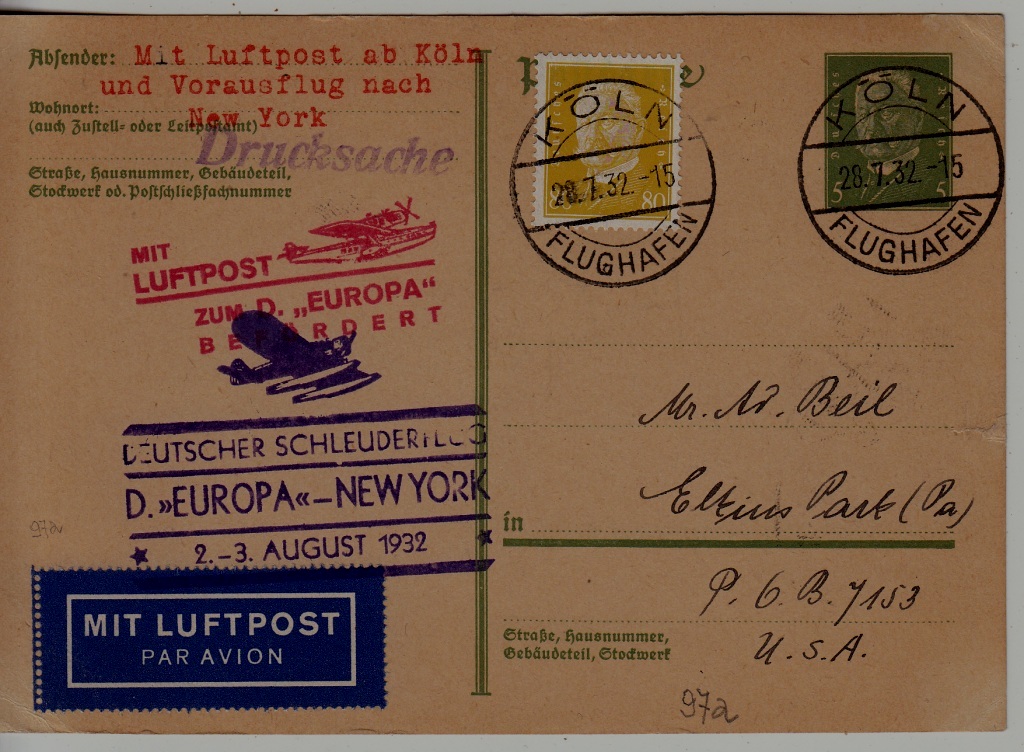 Absender: Mit Luftpost ab Köln
und Vorausflug nach
Wohnort: New York
(auch Zustell- oder Leitpostamt)
Drucksache
Straße, Hausnummer, Gebäudeteil,
Stockwerk od. Postschließfachnummer
MIT
LUFTPOST
ZUM D. „EUROPA“
BEFÖRDERT
DEUTSCHER SCHLEUDERFLUG
D. »EUROPA«–NEW YORK
2.–3. AUGUST 1932
97a
MIT LUFTPOST
PAR AVION
80
KÖLN
28.7.32.-15
FLUGHAFEN
5 5
KÖLN
28.7.32.-15
FLUGHAFEN
Mr. Ad. Beil
in Elkins Park (Pa)
P. O. B. 7153
Straße, Hausnummer,
Gebäudeteil, Stockwerk
U.S.A.
97a